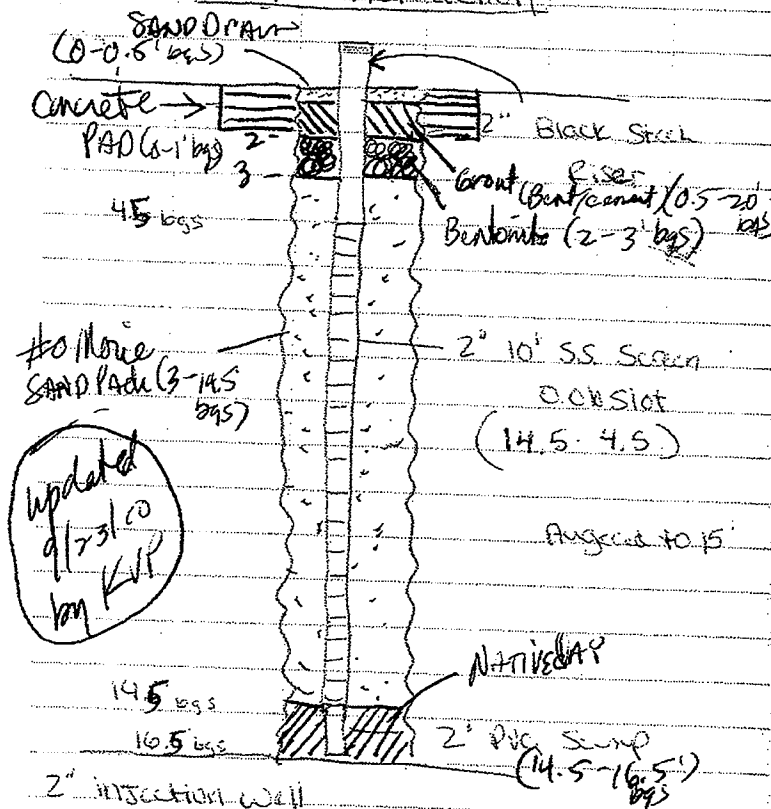 SAND DRAIN
(0-0.5' bgs)
Concrete →
PAD (0-1' bgs)
2" Black Steel
Riser
2-
3-
Grout (Bent/cement) (0.5-20' bgs)
Bentonite (2-3' bgs)
4.5 bgs
#0 Morie
SAND Pack (3-14.5
bgs)
2" 10' S.S. Screen
Slot
(14.5-4.5)
updated
by KVP
Augered to 15'
NATIVE CLAY
14.5 bgs
16.5 bgs
2' PVC Sump
(14.5-16.5')
bgs
2" injection well